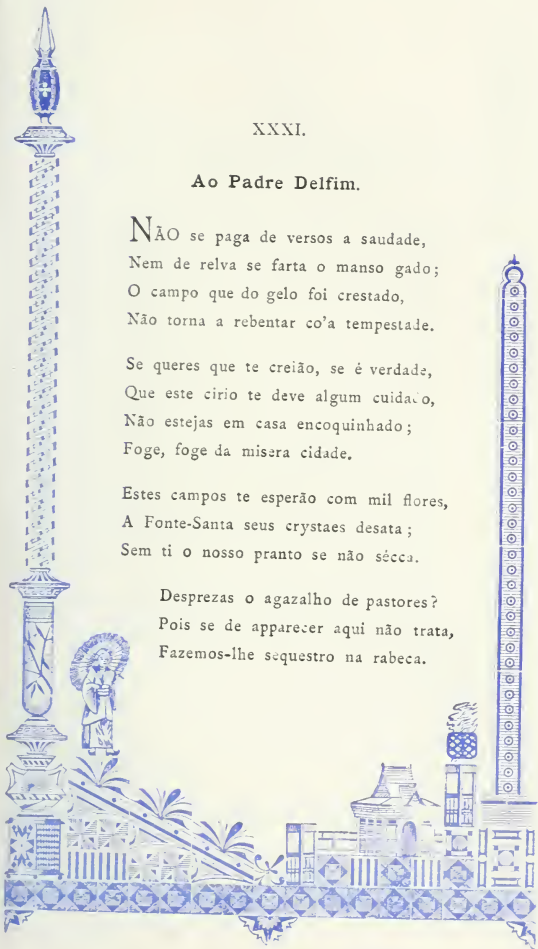 XXXI.
Ao Padre Delfim.
NÃO se paga de versos a saudade,
Nem de relva se farta o manso gado;
O campo que do gelo foi crestado,
Não torna a rebentar co'a tempestade.
Se queres que te creião, se é verdade,
Que este cirio te deve algum cuidado,
Não estejas em casa encoquinhado;
Foge, foge da misera cidade.
Estes campos te esperão com mil flores,
A Fonte-Santa seus crystaes desata;
Sem ti o nosso pranto se não sécca.
Desprezas o agazalho de pastores?
Pois se de apparecer aqui não trata,
Fazemos-lhe sequestro na rabeca.